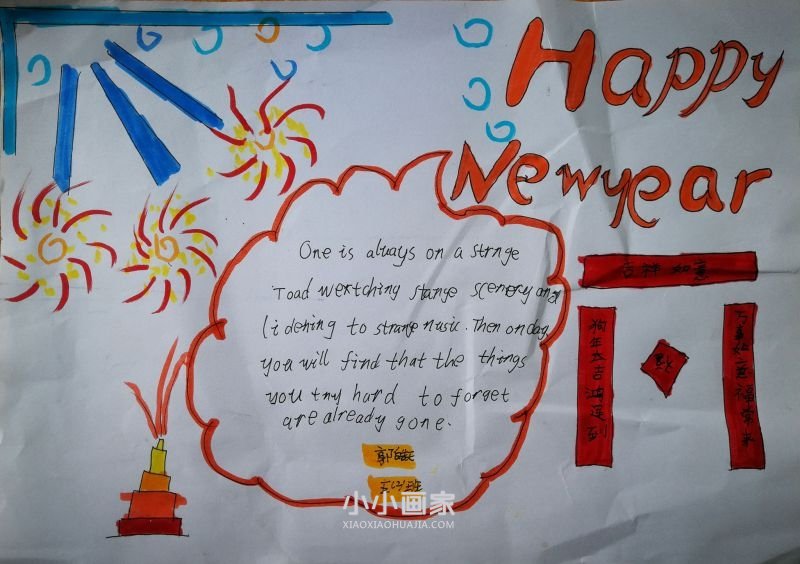 Happy
Newyear
One is always on a strnge
Toad wertching stange scenery and
lidening to strange music. Then on day
you will find that the things
you tny hard to forget
are already gone.
吉祥如意
狗年大吉鸿运到
万事如意福常来
郭
班
小小画家
XIAOXIAOHUAJIA.COM